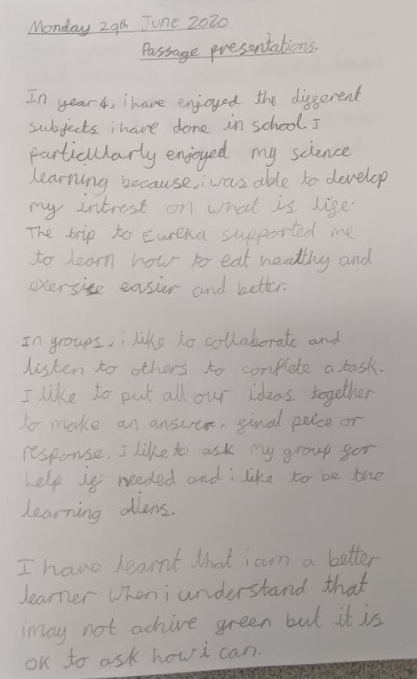 Monday 29th June 2020
Passage presentations.
In year 4, i have enjoyed the different
subjects i have done in school. I
particullarly enjoyed my science
learning because, i was able to develop
my intrest on what is life.
The trip to Eureka supported me
to learn how to eat healthy and
exersise easier and better.
In groups, i like to collaborate and
listen to others to complete a task.
I like to put all our ideas together
to make an answer, final peice or
response. I like to ask my group for
help if needed and i like to be the
learning
I have learnt that i am a better
learner when i understand that
i may not achive green but it is
OK to ask how i can.